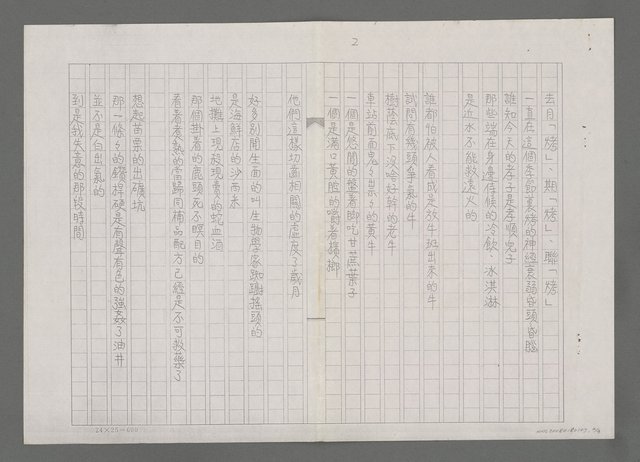 2
去月「烤」、期「烤」、聯「烤」
一直在這個季節裏烤的神經衰弱昏頭昏腦
誰知今天的孝子是孝順兒子
那些端在身邊侍候的冷飲、冰淇淋
是近水不能救遠火的
誰都怕被人看成是放牛班出來的牛
試問有幾頭爭氣的牛
樹蔭底下沒啥好幹的老牛
車站前面兜々票々的黃牛
一個是悠閒的盤著脚吃甘蔗葉子
一個是滿口黃腔的嚼著檳榔
他們這樣切面相關的虛度了歲月
好多別開生面的叫生物學家踟躕搖頭的
是海鮮店的沙西米
地攤上現殺現賣的蛇血酒
那個掛著的鹿頭死不瞑目的
看著煮熟的當歸同補品配方已經是不可救藥了
想起苗栗的出礦坑
那一條々的鑽桿硬是有聲有色的強姦了油井
並不是白出氣的
到是我失意的那段時間
24×25=600